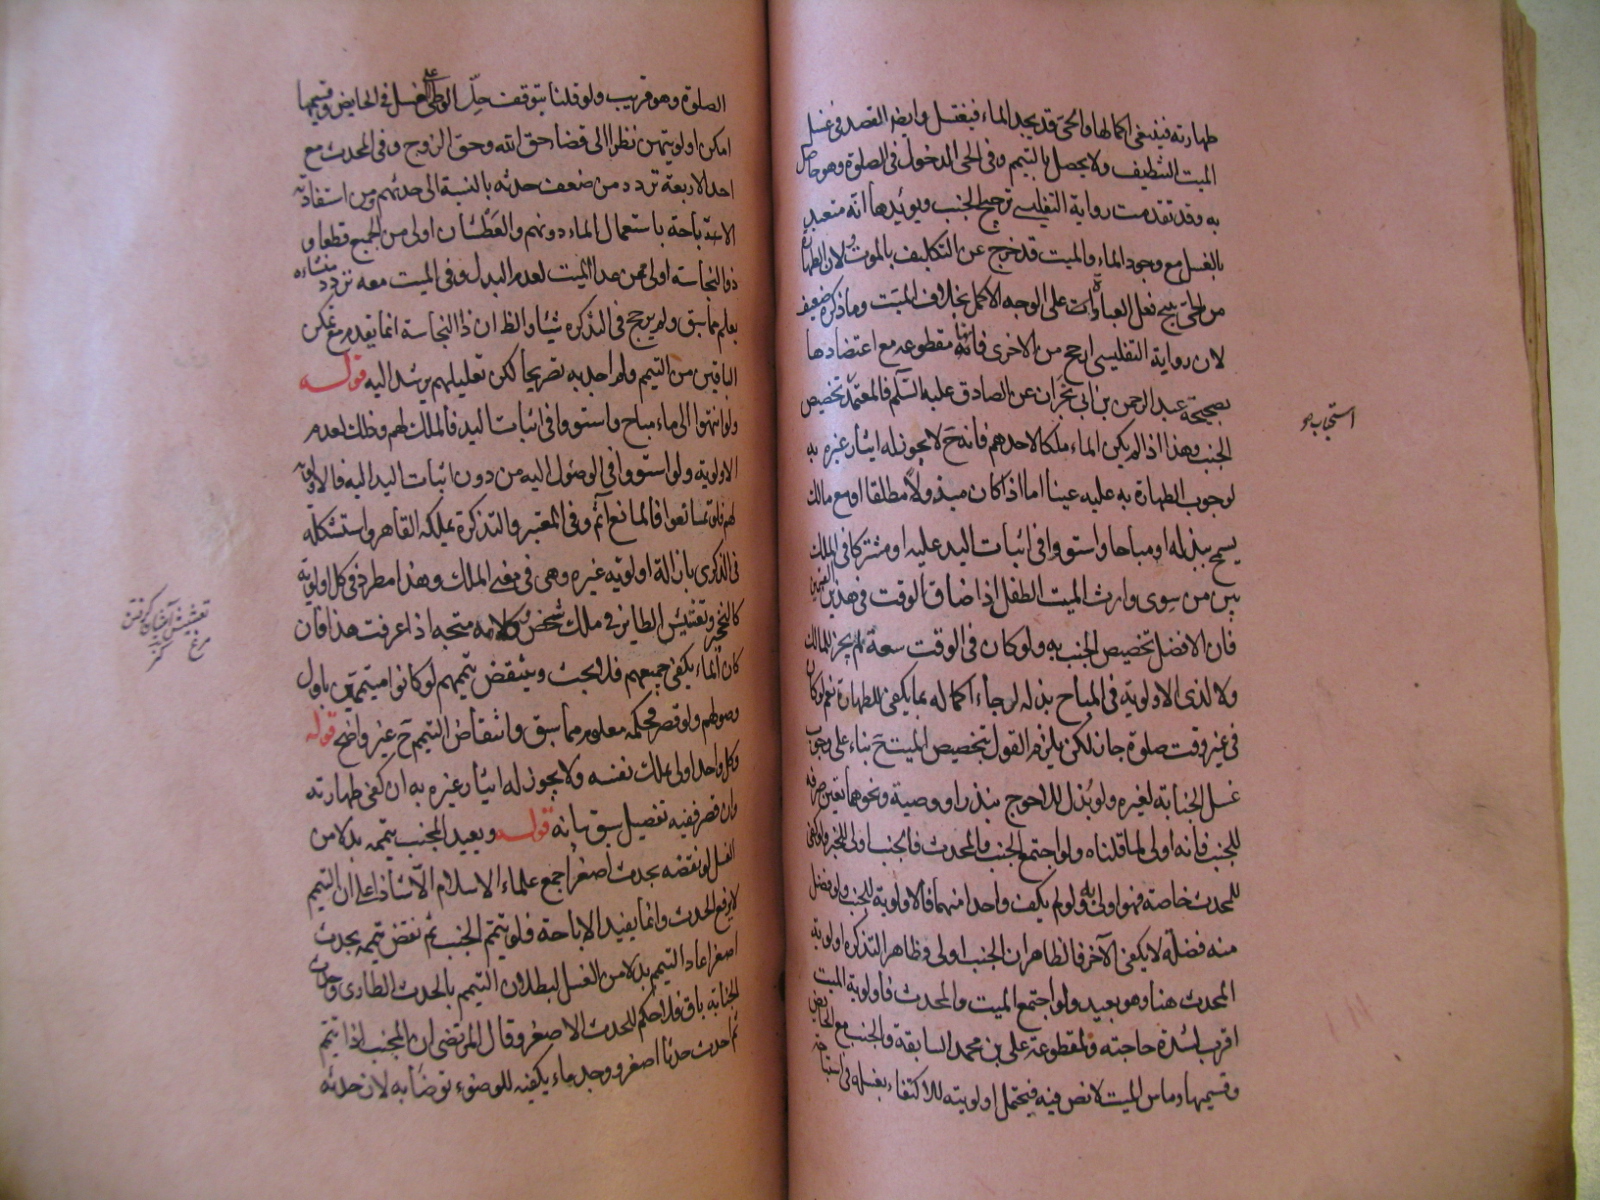 طهارته فينبغي اكمالها والحي قد يجد الماء فيغتسل وايضا القصد في غسل
الميت التنظيف ولا يحصل بالتيمم وفي الحي الدخول في الصلوة وهو حاصل
به وقد تقدمت رواية التفليسي ترجيح الجنب ويؤيدها انه متعبد
بالغسل مع وجود الماء والميت قد خرج عن التكليف بالموت ولان الطهارة
من الحي تبيح فعل العبادات على الوجه الاكمل بخلاف الميت وما ذكره ضعيف
لان رواية التفليسي ارجح من الاخرى فانها مقطوعة مع اعتضادها
بصحيحة عبد الرحمن بن ابي نجران عن الصادق عليه السلم فالمعتمد تخصيص
الجنب وهذا اذا لم يكن الماء ملكا لاحدهم فانه ح لا يجوز له ايثار غيره به
لوجوب الطهارة به عليه عينا اما اذا كان مبذولا مطلقا او مع مالك
يسمح ببذله او مباحا واستووا في اثبات اليد عليه او مشتركا في الملك
بين من سوى وارث الميت الطفل اذا ضاق الوقت في هذين
فان الافضل تخصيص الجنب به ولو كان في الوقت سعة لم يجز للمالك
ولا لذي الاولوية في المباح بذله لرجاء اكماله بما يكفي للطهارة نعم لو كان
في غير وقت صلوة جاز لكن يلزم القول بتخصيص الميت ح بناء على وجوب
غسل الجنابة لغيره ولو بذل للاحوج بنذر او وصية ونحوهما تعين صرفه
للجنب فانه اولى لما قلناه ولو اجتمع الجنب والمحدث فالجنب اولى للخبر ولو كفى
المحدث خاصة فهو اولى به ولو لم يكف واحدا منهما فالاولوية للجنب ولو فضل
منه فضلة لا يكفي الآخر فالظاهر ان الجنب اولى وظاهر التذكرة اولوية
المحدث هنا وهو بعيد ولو اجتمع الميت والمحدث فاولوية الميت
اقرب لشدة حاجته ولمقطوعة علي بن محمد السابقة والجنب مع الحايض
وقسيميها وماس الميت لا نص فيه فيحتمل اولويته للاكتفاء بغسله في استباحة
استحباب
الصلوة وهو قريب ولو قلنا بتوقف حل الوطي على الغسل في الحايض وقسيمها
امكن اولويتهن نظرا الى قضاء حق الله وحق الزوج وفي المحدث مع
احد الاربعة تردد من ضعف حدثه بالنسبة الى حدثهم ومن استفادته
الاستباحة باستعمال الماء دونهم والعطشان اولى من الجميع قطعا و
ذو النجاسة اولى ممن عدا الميت لعدم البدل وفي الميت معه تردد منشاءه
يعلم مما سبق ولم يرجح في التذكرة شيئا والظ ان ذا النجاسة انما يقدم مع تمكن
الباقين من التيمم ولم اجد به تصريحا لكن تعليلهم يرشد اليه قوله
ولو انتهوا الى ماء مباح واستووا في اثبات اليد فالملك لهم وذلك لعدم
الاولوية ولو استووا في الوصول اليه من دون اثبات اليد اليه فالاولوية
لهم فلو تمانعوا فالمانع آثم وفي المعتبر والتذكرة يملكه القاهر واستشكله
في الذكرى بازالة اولوية غيره وهي في معنى الملك وهذا مطرد في كل اولوية
كالتحجير وتعشيش الطائر في ملك شخص وكلامه متجه اذا عرفت هذا فان
كان الماء يكفي جميعهم فلا بحث وينتقض تيممهم لو كانوا متيممين باول
وصولهم ولو قصر فحكمه معلوم مما سبق وانتقاض التيمم ح غير واضح قوله
وكل واحد اولى بملك نفسه ولا يجوز له ايثار غيره به ان كفى طهارته
وان قصر ففيه تفصيل سبق بيانه قوله ويعيد المجنب تيممه بدلا من
الغسل لو نقضه بحدث اصغر اجمع علماء الاسلام الا شاذا على ان التيمم
لا يرفع الحدث وانما يفيد الاباحة فلو تيمم الجنب ثم نقض تيممه بحدث
اصغر اعاد التيمم بدلا من الغسل لبطلان التيمم بالحدث الطارى وحدث
الجنابة باق فلا حكم للحدث الاصغر وقال المرتضى ان المجنب اذا تيمم
ثم احدث حدثا اصغر ووجد ماء يكفيه للوضوء توضأ به لان حدثه
تعشيش آشيان گرفتن
مرغ كنز